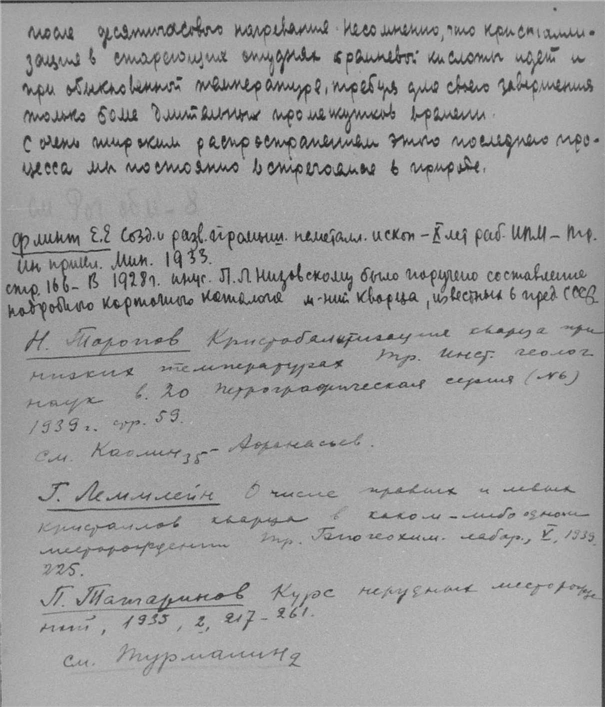 после десятичасового нагревания. Несомненно, что кристалли-
зация в стареющих студнях кремневой кислоты идет и
при обыкновенной температуре, требуя для своего завершения
только более длительных промежутков времени.
С очень широким распространением этого последнего про-
цесса мы постоянно встречаемся в природе.
Флинт Е.Е Созд. и разв. промыш. неметалл. ископ – X лет раб. ИПМ – Тр.
Ин прикл. Мин. 1933.
стр. 166 – В 1928 г. инж. П.Л. Низовскому было поручено составление
подробного карточного каталога м-ний кварца, известных в пред СССР
Н. Торопов Кристобалитизация кварца при
низких температурах Тр. Инст. геолог
наук в. 20 Петрографическая серия (№6)
1939 г. стр. 59.
см. Каолин 35 – Афанасьев.
Г. Леммлейн О числе правых и левых
кристаллов кварца в каком-либо одном
месторождении Тр. Биогеохим. лабор., V, 1939.
225.
П. Татаринов Курс нерудных месторожде
ний, 1935, 2, 217–261.
см. Турмалин 2